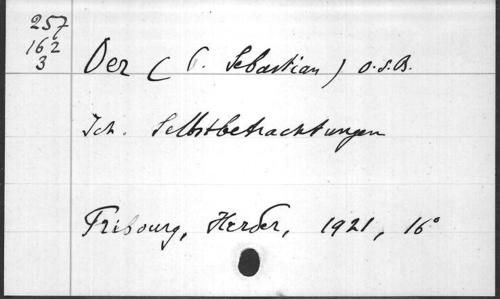 257
162
3
Oer (P. Sebastian) O.S.B.
Ich. Selbstbetrachtungen
Fribourg, Herder, 1921, 16°